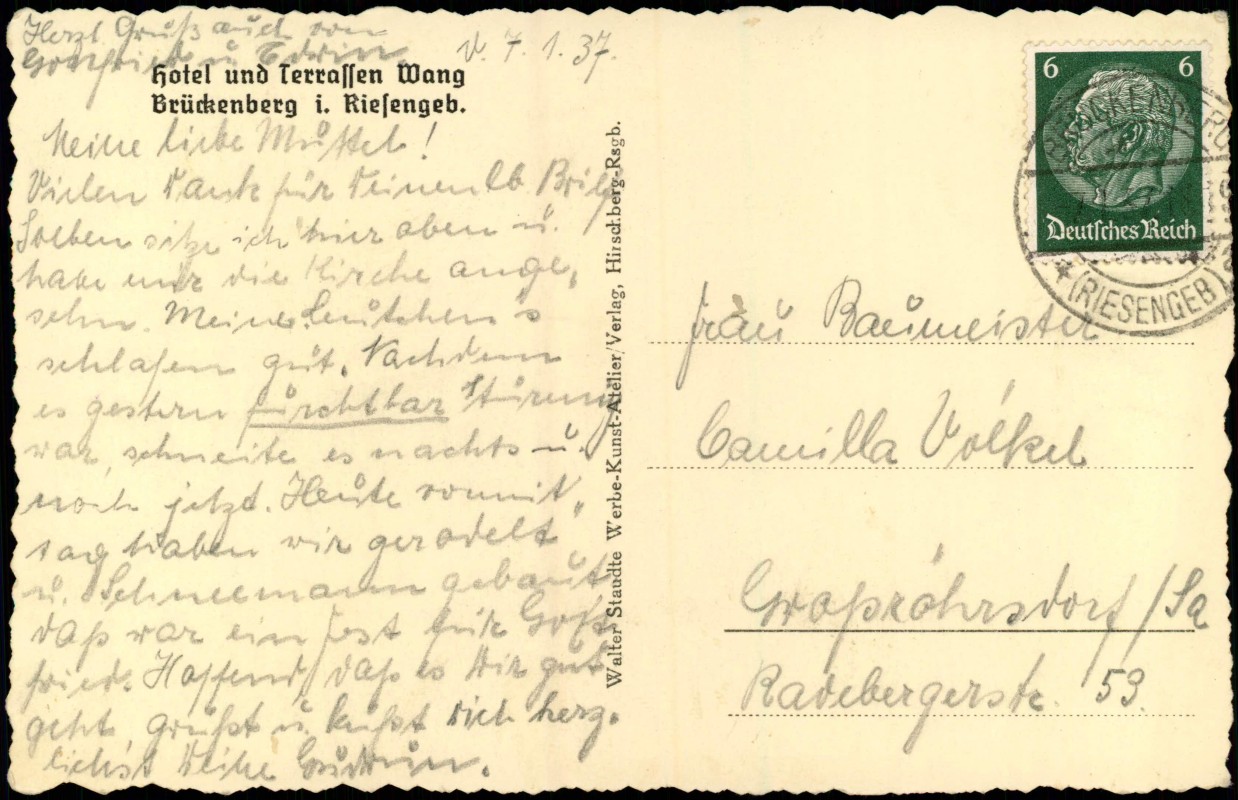 Herzl Gruß auch von
Gottfried u Edwin.
d. 7. 1. 37.
Hotel und Terrassen Wang
Brückenberg i. Riesengeb.
Meine liebe Muttel!
Vielen Dank für Deinen lb. Brief
Soeben sitze ich hier oben u.
habe mir die Kirche ange-
sehn. Meine Leutchen's
schlafen gut. Nachdem
es gestern furchtbar stürmig
war, schneite es nachts u.
noch jetzt. Heute vormit-
tag haben wir gerodelt
u. Schneemann gebaut
daß war ein Fest für Gott-
fried. Hoffend, daß es Dir gut
geht grüßt u. küßt Dich herz-
lichst Deine Gudrun.
Walter Staudte Werbe-Kunst-Atelier/Verlag, Hirschberg-Rsgb.
6 6
Deutsches Reich
BRÜCKENBERG
(RIESENGEB)
Frau Baumeister
Camilla Völkel
Großröhrsdorf/Sa
Radebergerstr. 53.